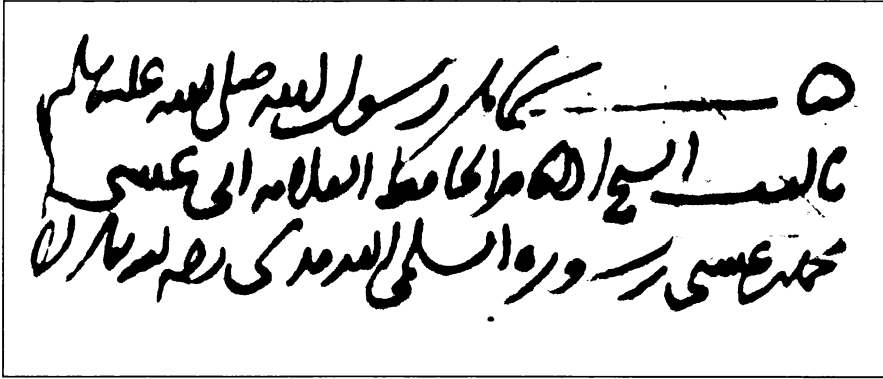 شمائل رسول الله صلى الله عليه وسلم
تاليف الشيخ الامام الحافظ العلامه ابي عيسى
محمد بن عيسى بن سورة السلمي الترمذي رحمه الله تعالى